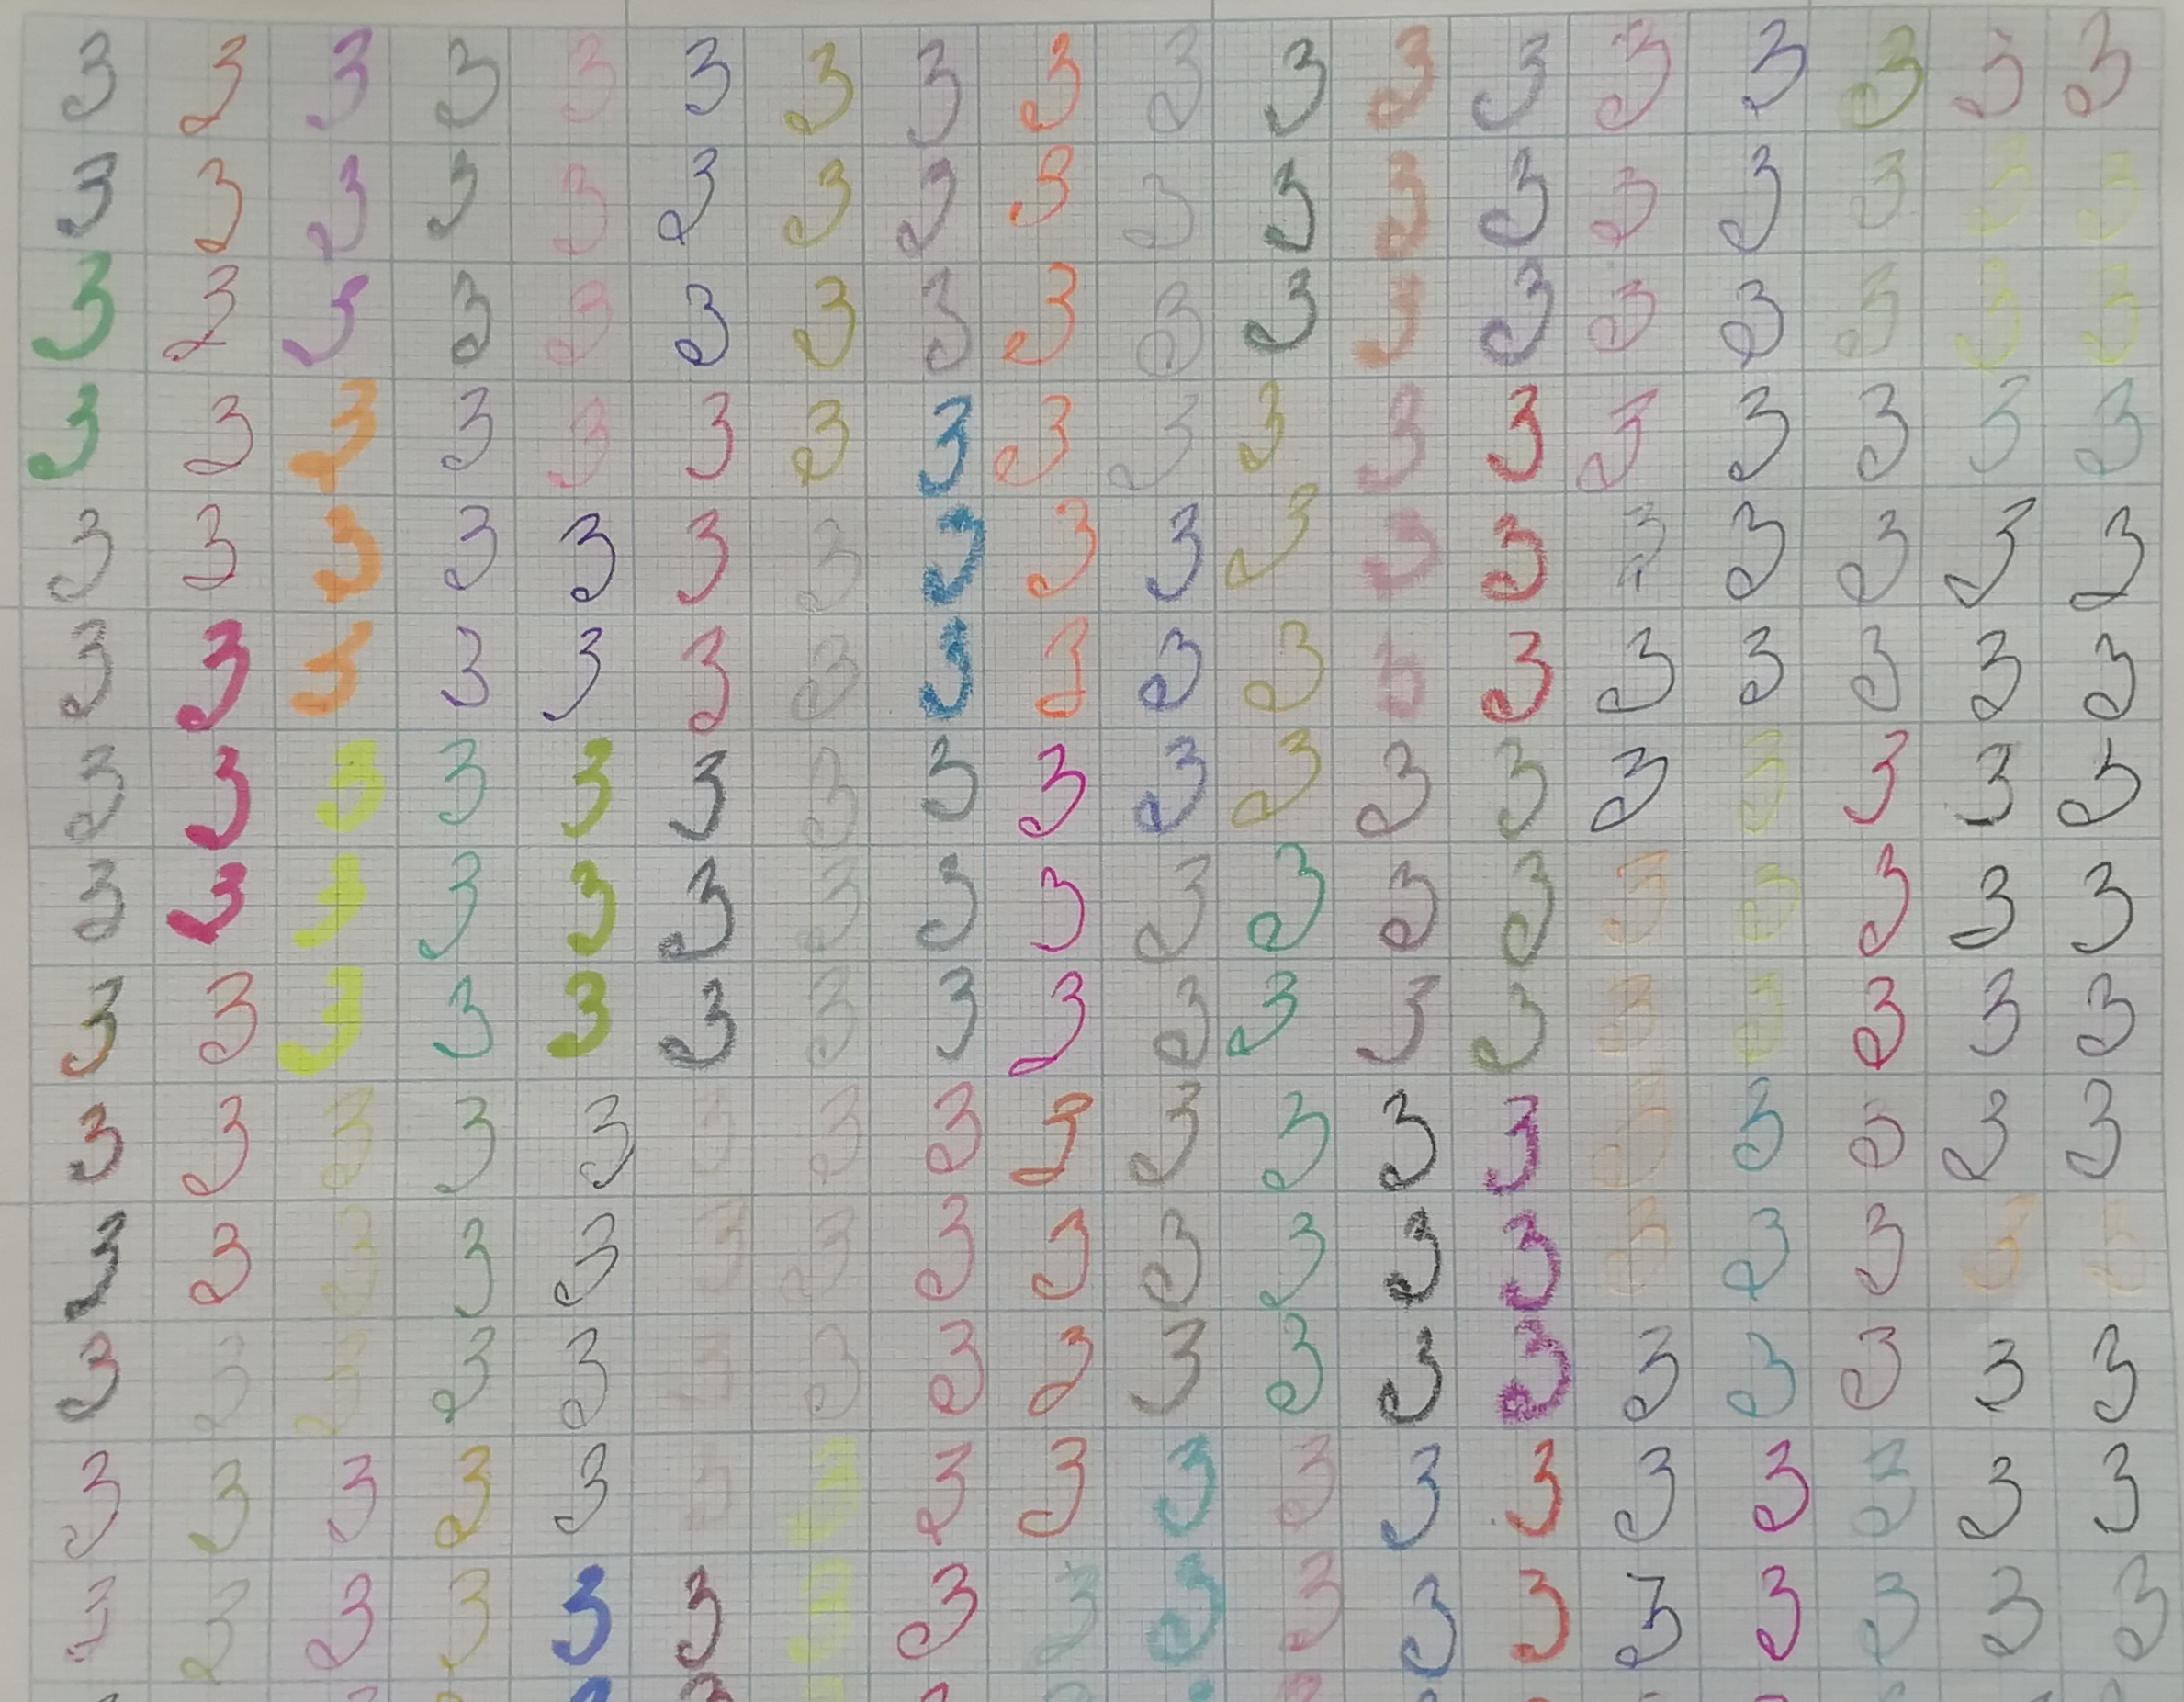 3 3 3 3 3 3 3 3 3 3 3 3 3 3 3 3 3 3
3 3 3 3 3 3 3 3 3 3 3 3 3 3 3 3 3 3
3 3 3 3 3 3 3 3 3 3 3 3 3 3 3 3 3 3
3 3 3 3 3 3 3 3 3 3 3 3 3 3 3 3 3 3
3 3 3 3 3 3 3 3 3 3 3 3 3 3 3 3 3 3
3 3 3 3 3 3 3 3 3 3 3 3 3 3 3 3 3 3
3 3 3 3 3 3 3 3 3 3 3 3 3 3 3 3 3 3
3 3 3 3 3 3 3 3 3 3 3 3 3 3 3 3 3 3
3 3 3 3 3 3 3 3 3 3 3 3 3 3 3 3 3 3
3 3 3 3 3 3 3 3 3 3 3 3 3 3 3 3 3 3
3 3 3 3 3 3 3 3 3 3 3 3 3 3 3 3 3 3
3 3 3 3 3 3 3 3 3 3 3 3 3 3 3 3 3 3
3 3 3 3 3 3 3 3 3 3 3 3 3 3 3 3 3 3
3 3 3 3 3 3 3 3 3 3 3 3 3 3 3 3 3 3